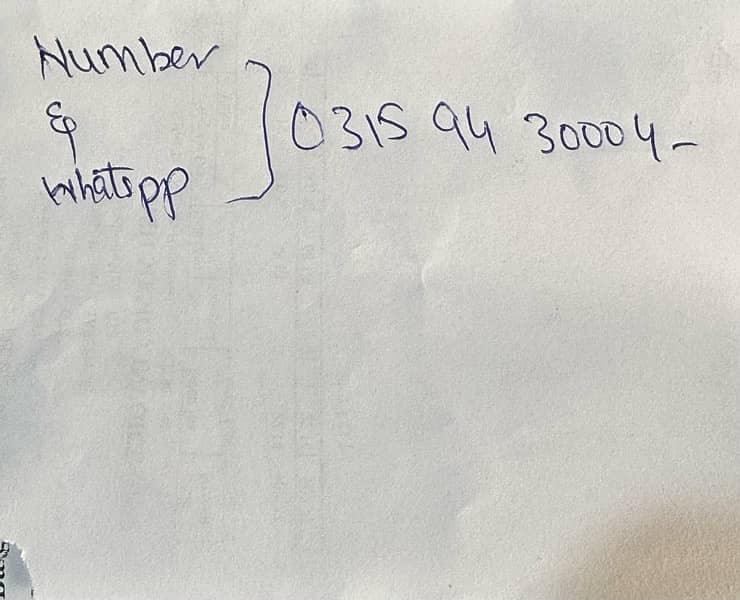 Number
&
Whatspp
} 0315 94 30004-